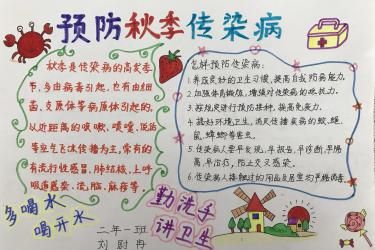 预防秋季传染病
秋季是传染病的高发季
节，多由病毒引起，也有由细
菌、支原体等病原体引起的，
以近距离的咳嗽、喷嚏、低语
等空气飞沫传播为主，常有的
有流行性感冒、肺结核、上呼
吸道感染、流脑、麻疹等。
怎样预防传染病：
1.养成良好的卫生习惯，提高自我防病能力。
2.加强体育锻炼，增强对传染病的抵抗力。
3.按规定进行预防接种，提高免疫力。
4.搞好环境卫生，消灭传播疾病的蚊、蝇、
鼠、蟑螂等害虫。
5.传染病人要早发现，早报告，早诊断，早隔
离，早治疗，防止交叉感染。
6.传染病人接触过的用品及居室均严格消毒。
多喝水
喝开水
勤洗手
讲卫生
二年一班
刘尉冉